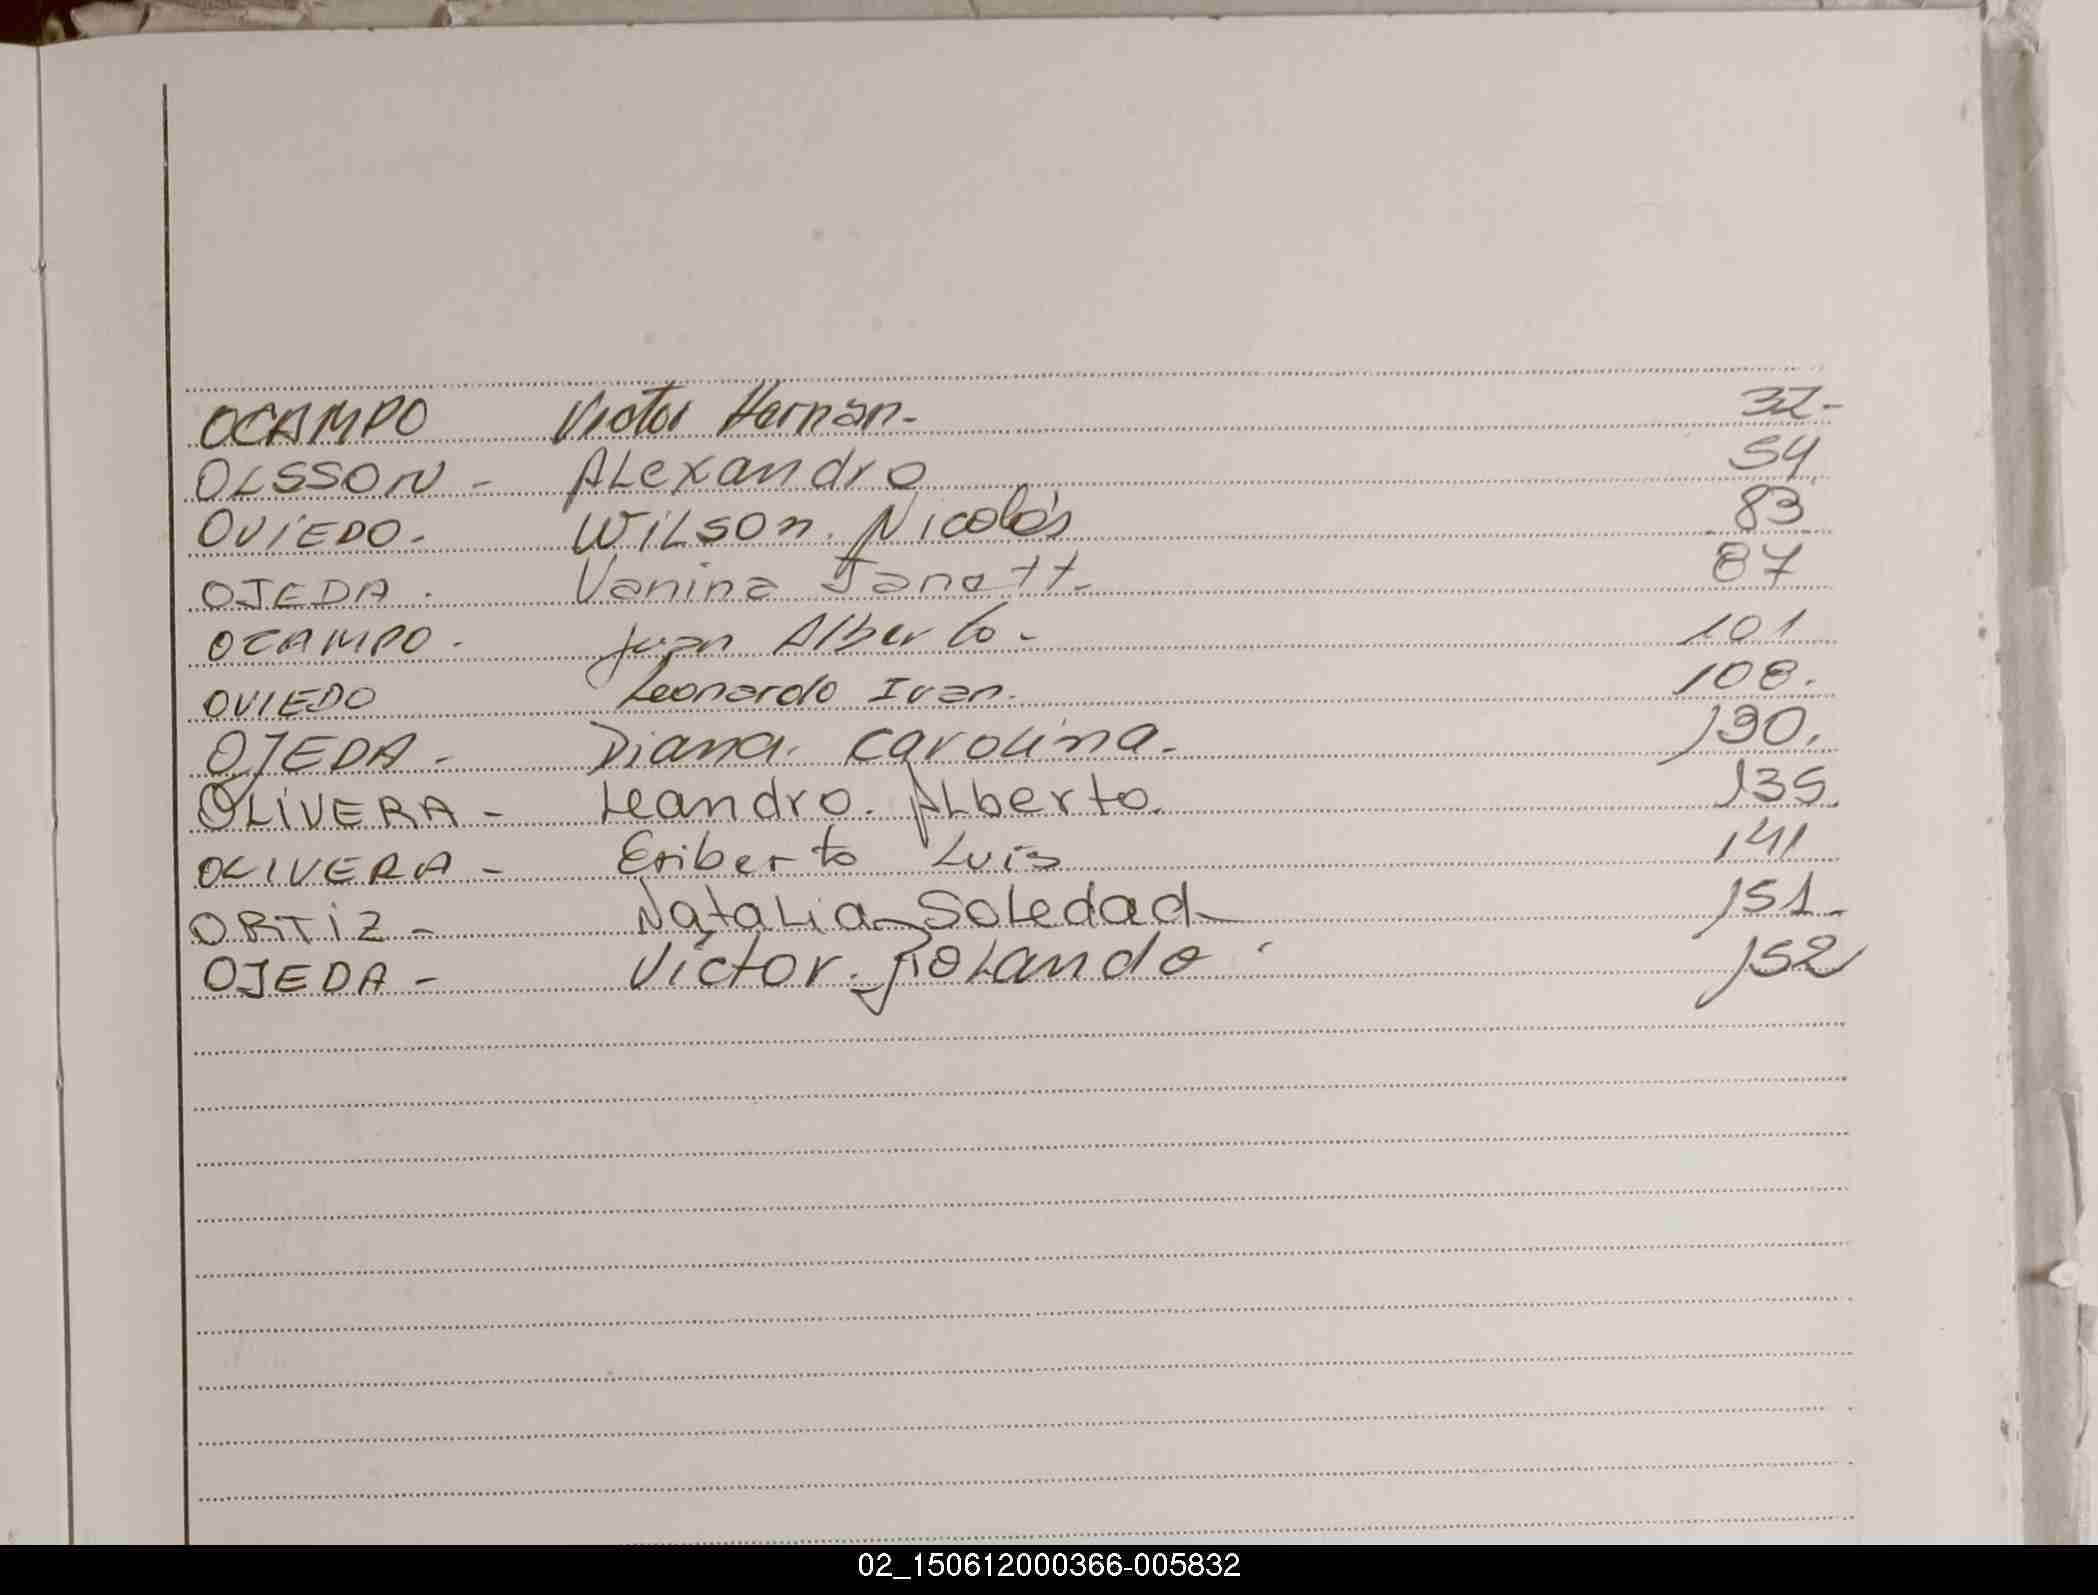 OCAMPO Victor Hernán- 32-
OLSSON - ALexandro 54
OViEDO. WiLSON. Nicolás 83
OJEDA. Vanina Janett- 87
OCAMPO. Juan Alberto- 101
OVIEDO Leonardo Ivan. 108.
OJEDA- Diana. Carolina. 130.
OLiVERA- Leandro. ALberto. 135.
OLIVERA- Eriberto Luis 141
ORTiZ- NataLia SoLedad- 151-
OJEDA- Victor. RoLando 152
02_150612000366-005832